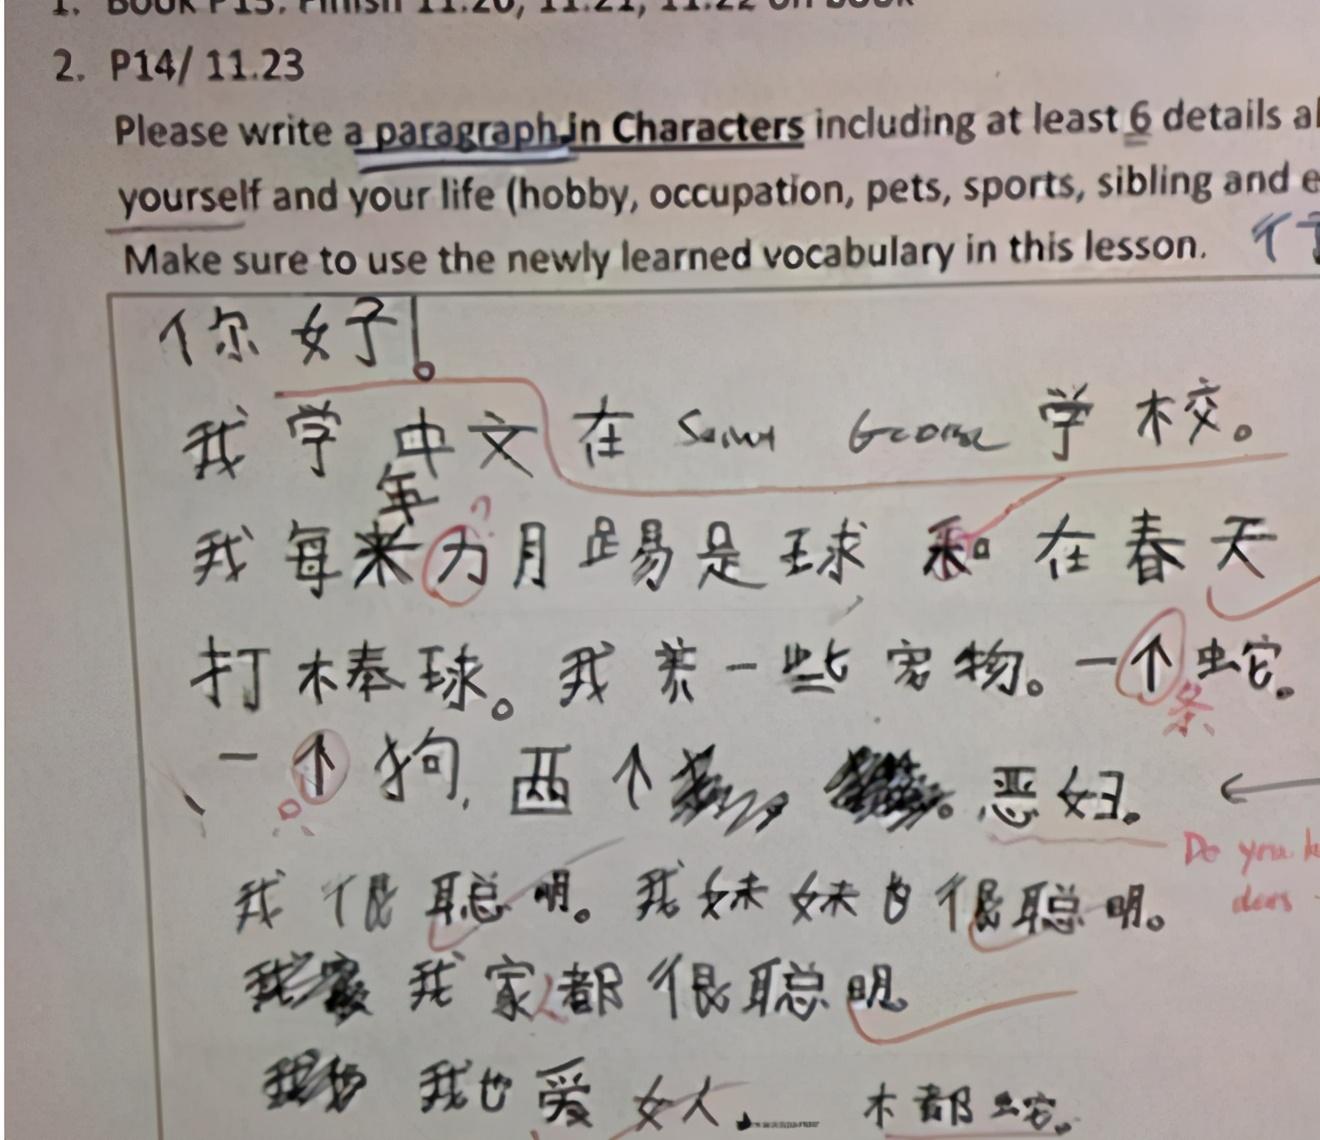 1. BOOK P13. Finish 11.20, 11.21, 11.22 on book
2. P14/ 11.23
Please write a paragraph in Characters including at least 6 details
yourself and your life (hobby, occupation, pets, sports, sibling and
Make sure to use the newly learned vocabulary in this lesson.
你好!。
我学中文在 Saint George 学校。
年
?
我每 月踢是球和在春天
打棒球。我养一些宠物。一个蛇。
条
一个狗, 两个 。恶妇。
Do you
does
我很聪明。我妹妹也很聪明。
我家人都很聪明
我也爱女人. 蛇。